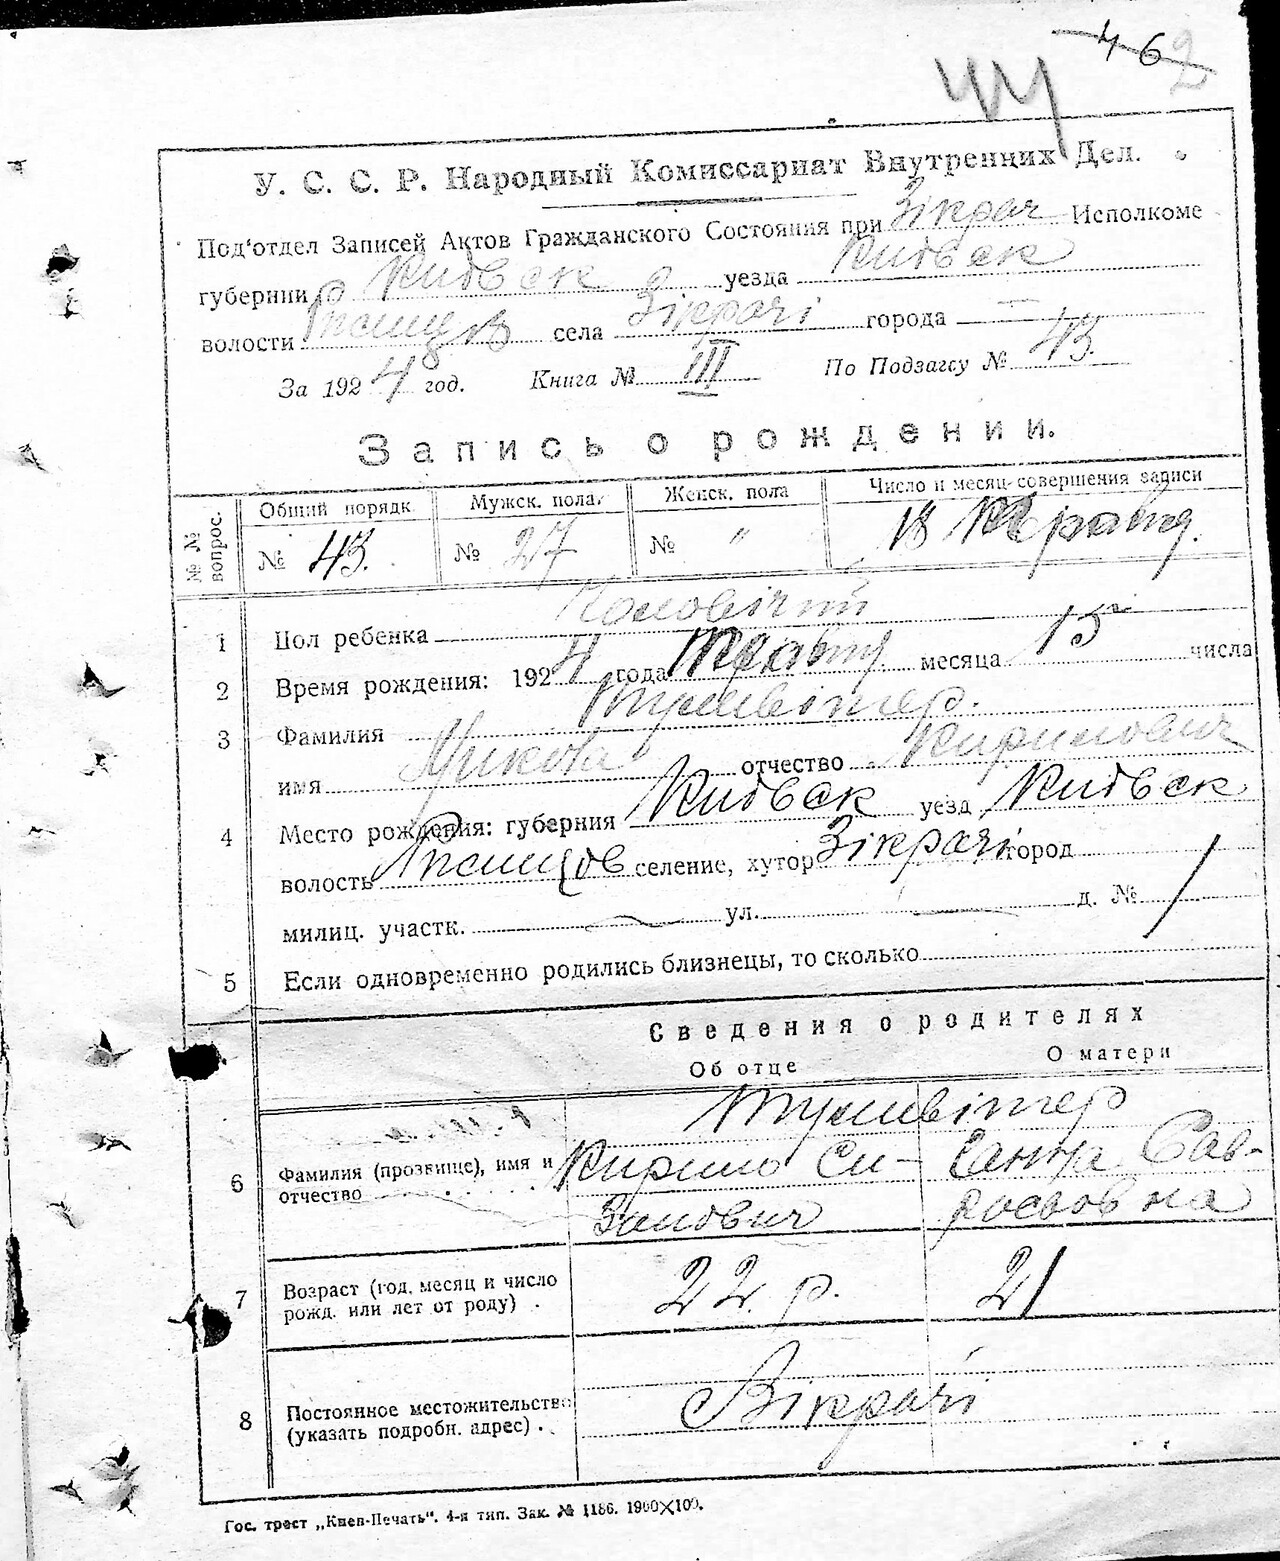 462
44
У. С. С. Р. Народный Комиссариат Внутренних Дел.
Под'отдел Записей Актов Гражданского Состояния при Зікрач Исполкоме
губернии Київськ уезда Київськ
волости села Зікрачі города —
За 1924 год. Книга № III По Подзагсу № 43.
Запись о рождении.
№ № вопрос. Общий порядк. Мужск. пола. Женск. пола Число и месяц совершения записи
№ 43. № 27 № " 18 Травня.
1 Пол ребенка Чоловічий
2 Время рождения: 1924 года Травня месяца 15 числа
3 Фамилия Тумвітер.
имя Микола отчество Кирилович
4 Место рождения: губерния Київськ уезд Київськ
волость селение, хутор Зікрачі город
милиц. участк. — ул. — д. №
5 Если одновременно родились близнецы, то сколько
Сведения о родителях
Об отце О матери
6 Фамилия (прозвище), имя и отчество
Кирило Ганна
7 Возраст (год, месяц и число рожд. или лет от роду) . 22 р. 21
8 Постоянное местожительство (указать подробн. адрес) . Зікрачі
Гос. трест „Киев-Печать". 4-я тип. Зак. № 1186. 1900×100.